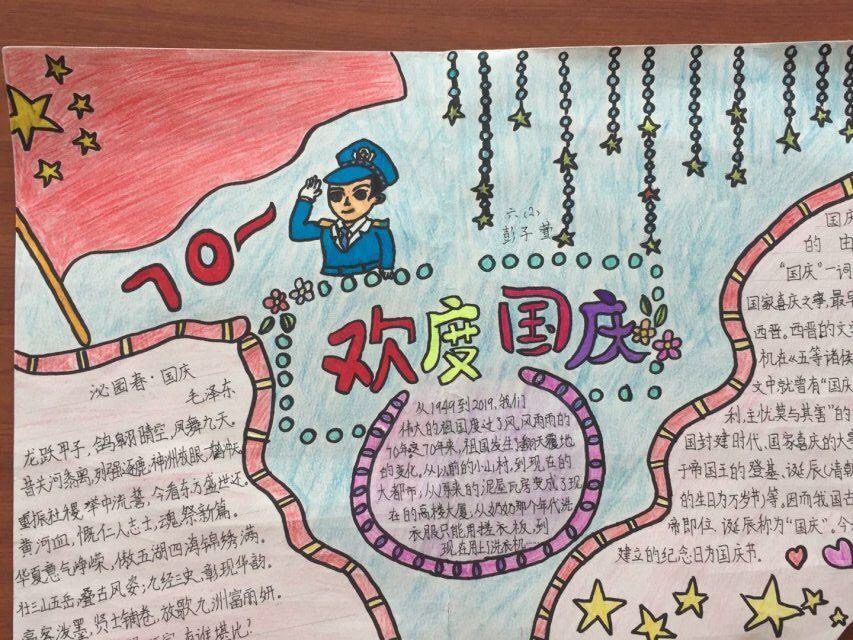 70一
六(2)
彭子萱
欢度国庆
沁园春·国庆
毛泽东
龙跃甲子,鸽翱晴空,凤舞九天。
昔关河寥落,列强逐鹿,神州放眼,
重振社稷,举中流誓,今看东方盛世还。
黄河血,慨仁人志士,魂祭新篇。
华夏意气峥嵘,傲五湖四海锦绣满。
壮三山五岳,叠古风姿;九经三史,彰现华韵。
豪客泼墨,贤士铺卷,放歌九州富丽妍。
有谁堪比?
从1949到2019,我们
伟大的祖国度过了风风雨雨的
70年。这70年来,祖国发生了翻天覆地
的变化,从以前的小山村,到现在的
大都市,从原来的泥屋瓦房变成了现
在的高楼大厦,从奶奶那个年代洗
衣服只能用搓衣板,到
现在用上洗衣机……
国庆
的由
“国庆”一词
国家喜庆之事,最早
西晋。西晋的文学
机在《五等诸侯
文中就曾有“国庆
利,主忧莫与其害”的
国封建时代、国家喜庆的大事
于帝国王的登基、诞辰(清朝
的生日为万岁节)等,因而我国古
帝即位、诞辰称为“国庆”。今
建立的纪念日为国庆节。